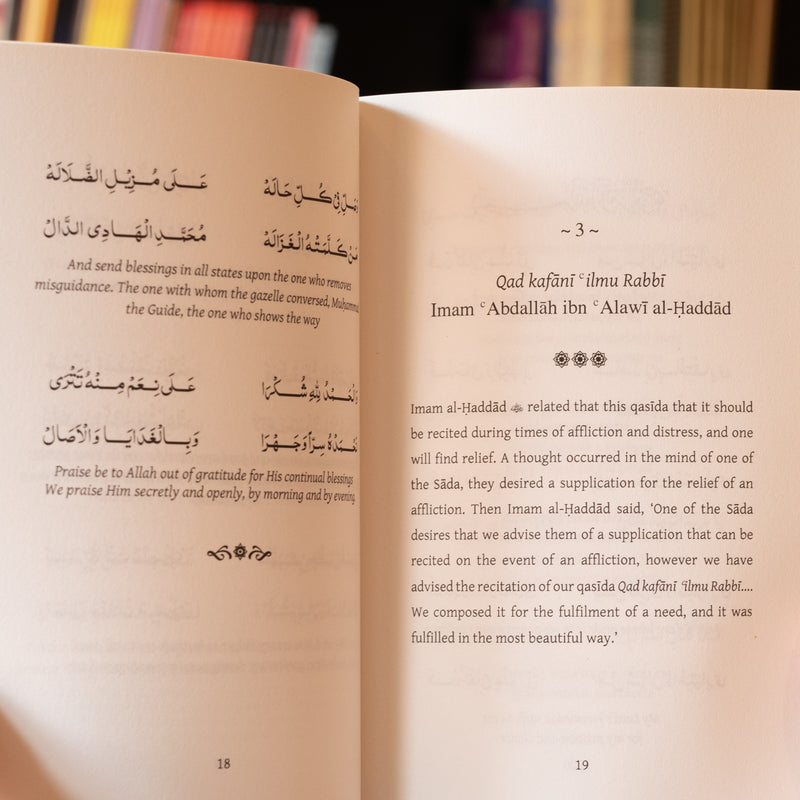 وَصَلِّ فِي كُلِّ حَالَهْ عَلَى مُزِيْلِ الضَّلَالَهْ
مَنْ كَلَّمَتْهُ الْغَزَالَهْ مُحَمَّدِ الْهَادِي الدَّالْ
And send blessings in all states upon the one who removes
misguidance. The one with whom the gazelle conversed, Muḥammad
the Guide, the one who shows the way
وَالْحَمْدُ لِلّٰهِ شُكْرَا عَلَى نِعَمْ مِنْهُ تَتْرَى
نَحْمَدُهُ سِرّاً وَجَهْرَا وَبِالْغَدَايَا وَالْآصَالْ
Praise be to Allah out of gratitude for His continual blessings
We praise Him secretly and openly, by morning and by evening.
18
~ 3 ~
Qad kafānī ʿilmu Rabbī
Imam ʿAbdallāh ibn ʿAlawī al-Ḥaddād
Imam al-Ḥaddād related that this qasīda that it should
be recited during times of affliction and distress, and one
will find relief. A thought occurred in the mind of one of
the Sāda, they desired a supplication for the relief of an
affliction. Then Imam al-Ḥaddād said, ‘One of the Sāda
desires that we advise them of a supplication that can be
recited on the event of an affliction, however we have
advised the recitation of our qasīda Qad kafānī ʿilmu Rabbī....
We composed it for the fulfilment of a need, and it was
fulfilled in the most beautiful way.’
19